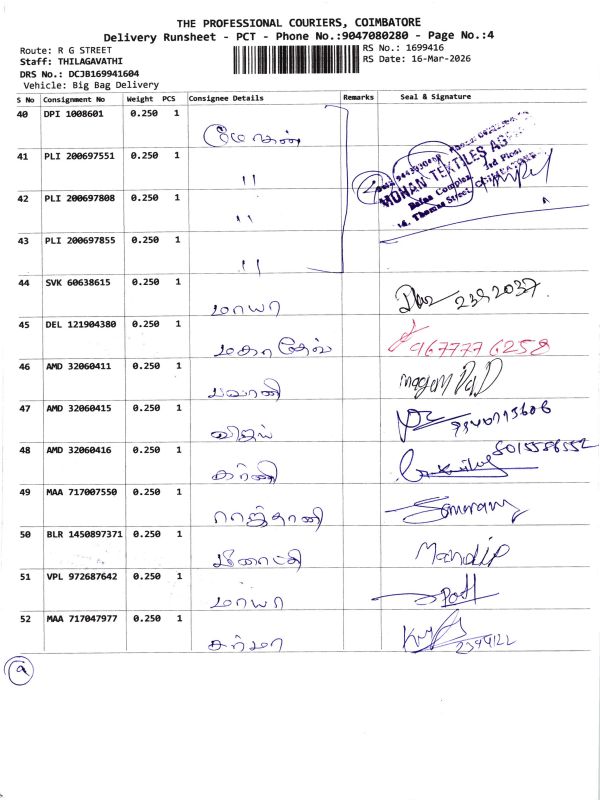 THE PROFESSIONAL COURIERS, COIMBATORE
Delivery Runsheet - PCT - Phone No.:9047080280 - Page No.:4
Route: R G STREET
RS No.: 1699416
Staff: THILAGAVATHI
RS Date: 16-Mar-2026
DRS No.: DCJB169941604
Vehicle: Big Bag Delivery
S No Consignment No Weight PCS Consignee Details Remarks Seal & Signature
40 DPI 1008601 0.250 1 மோகன்
41 PLI 200697551 0.250 1 "
MOHAN TEXTILES
Complex, 3rd Floor
Thomas Street
42 PLI 200697808 0.250 1 "
43 PLI 200697855 0.250 1 "
44 SVK 60638615 0.250 1 மாயா
45 DEL 121904380 0.250 1 மகாதேவ் 9677776258
46 AMD 32060411 0.250 1 பவானி
47 AMD 32060415 0.250 1 விஜய்
48 AMD 32060416 0.250 1 கர்னி
49 MAA 717007550 0.250 1 ராஜ்தானி
50 BLR 1450897371 0.250 1 மீனாட்சி Mandip
51 VPL 972687642 0.250 1 மாயா
52 MAA 717047977 0.250 1 சுர்மா
9